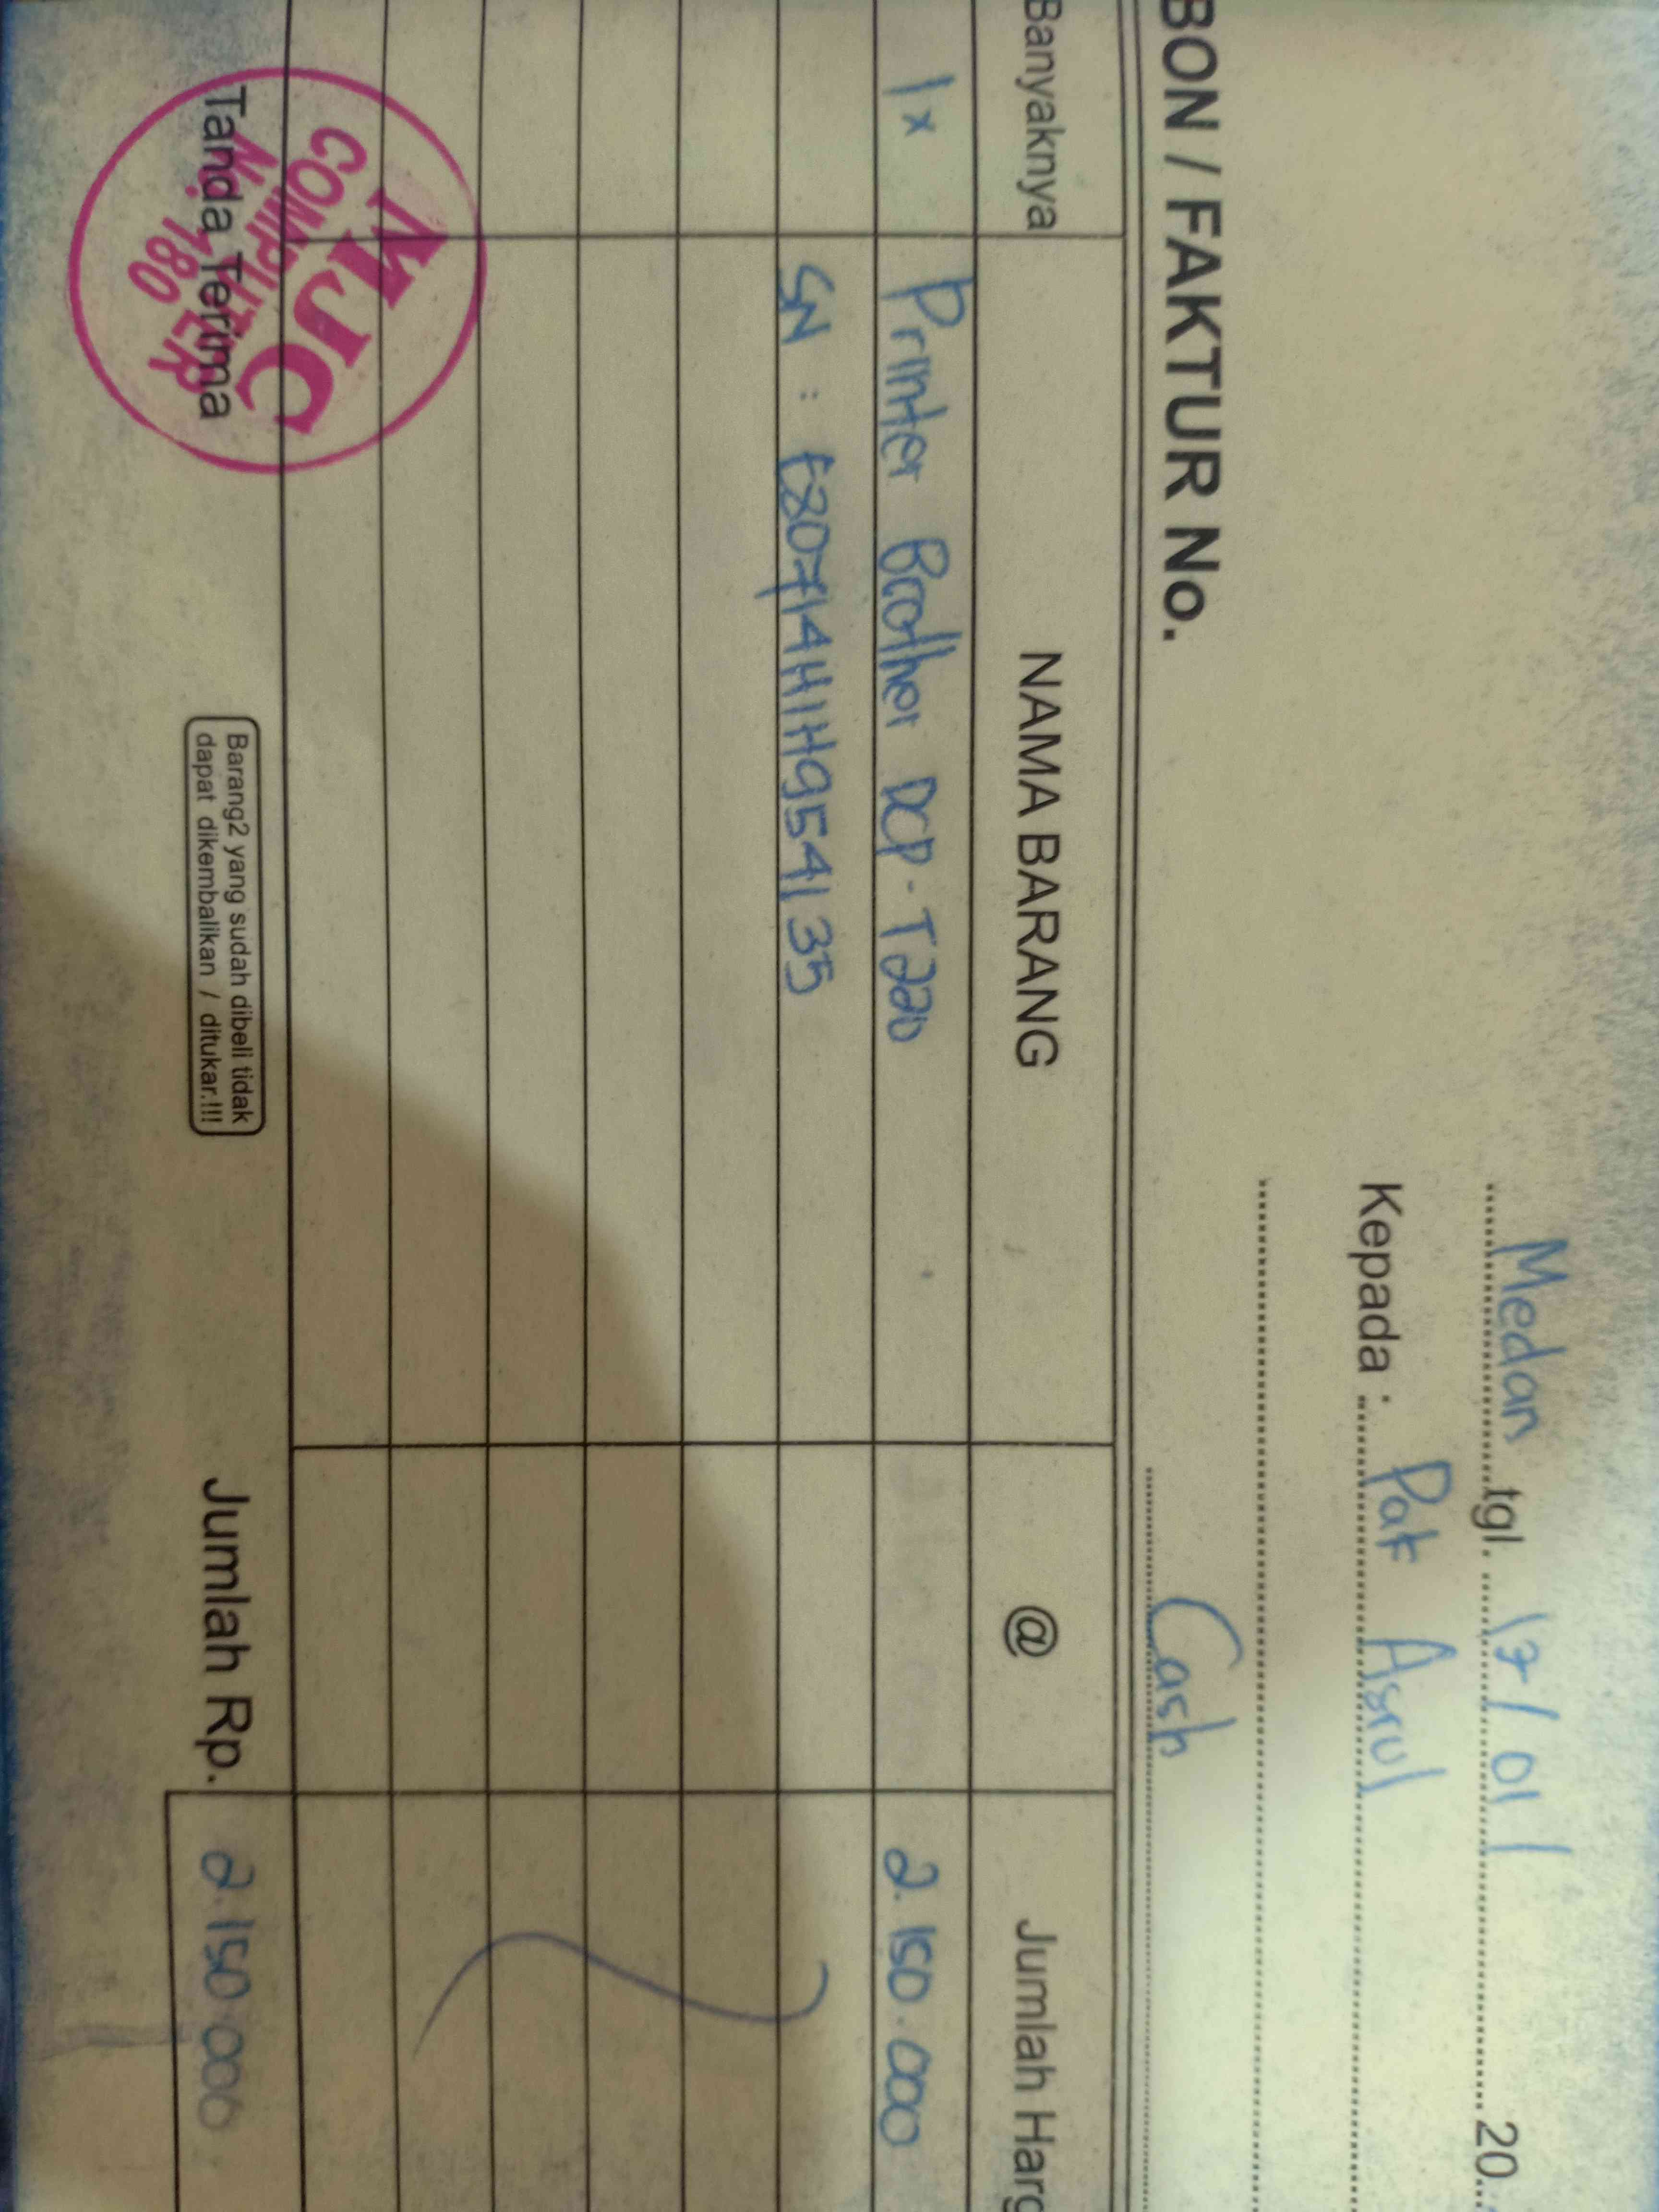 Medan tgl. 17/01/ 20..
Kepada : Pak Asrul
Cash
BON / FAKTUR No.
Banyaknya NAMA BARANG @ Jumlah Harg
1x Printer Brother DCP-T220 2.150.000
SN : E80714H1H954135
Tanda Terima
MJC
COMPUTER
Barang2 yang sudah dibeli tidak
dapat dikembalikan / ditukar.!!!
Jumlah Rp. 2.150.000